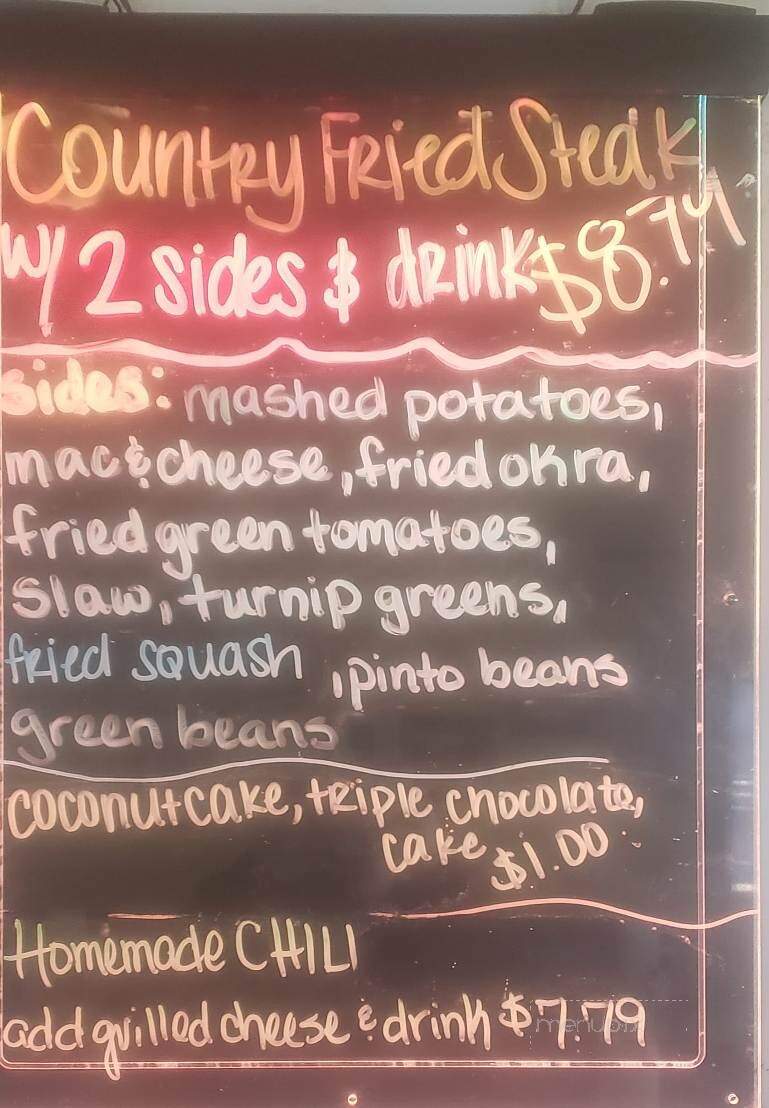 Country Fried Steak
w/ 2 sides & drink $8.79
sides: mashed potatoes,
mac & cheese, fried okra,
fried green tomatoes,
slaw, turnip greens,
fried squash, pinto beans
green beans
coconut cake, triple chocolate,
cake $1.00
Homemade CHILI
add grilled cheese & drink $7.79
menupix